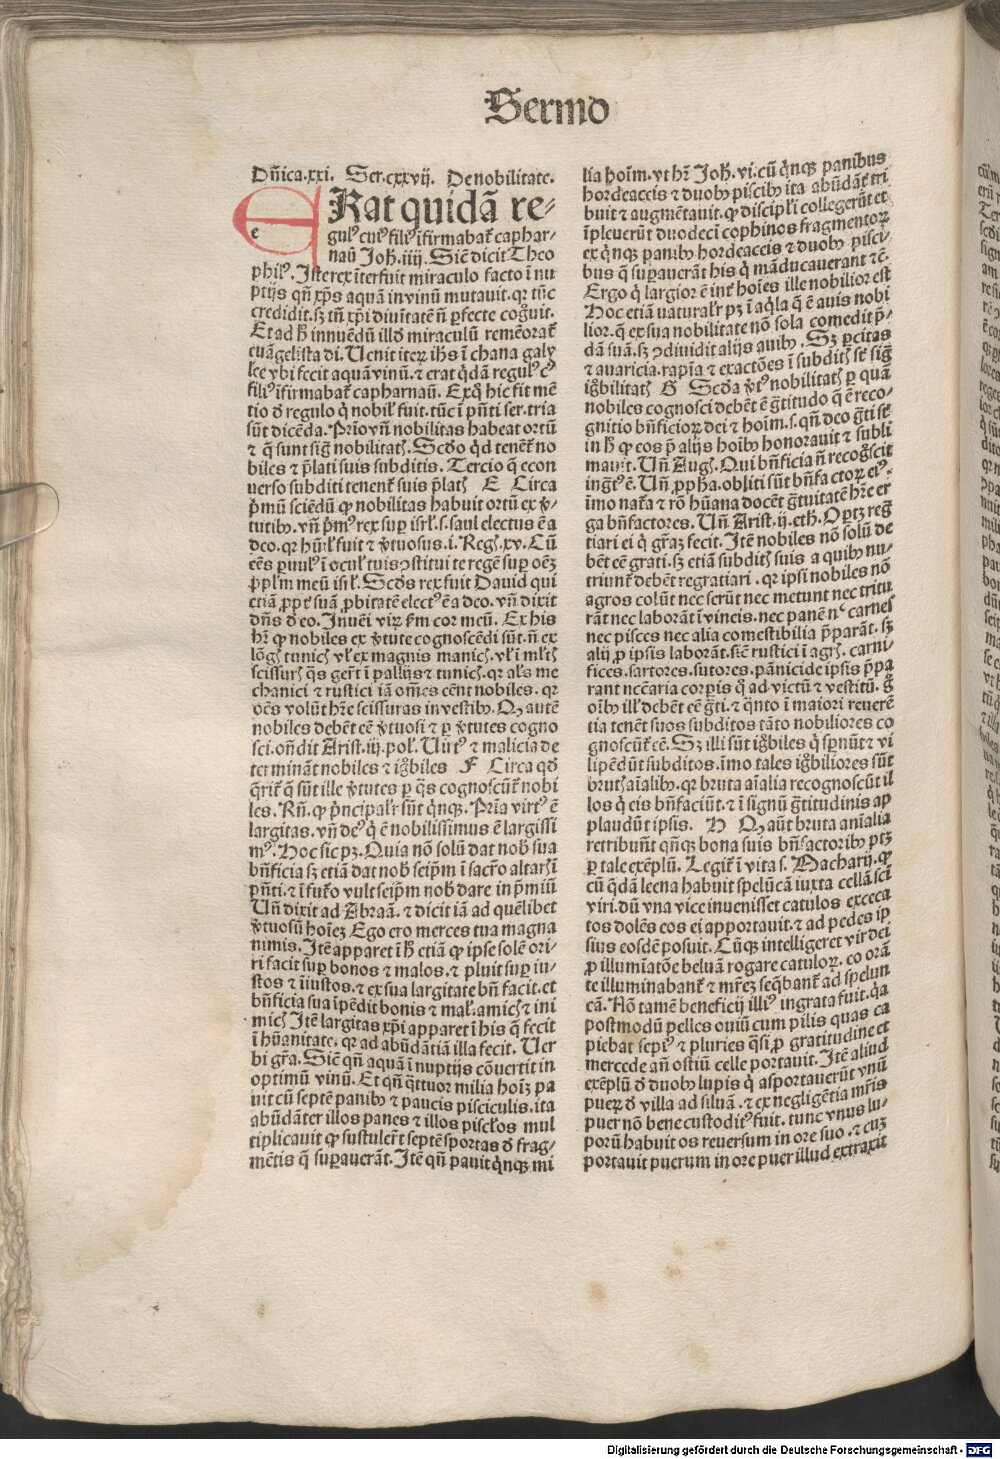 Sermo
Dñica.xxi. Ser.cxxvij. De nobilitate.
ERat quidã re⸗
gulꝰ cuiꝰ filiꝰ ĩfirmabat᷑ caphar⸗
naũ Joh̃. iiij. Sic̃ dicit Theo
philꝰ. Iste rex ĩterfuit miraculo facto ĩ nu
ptijs qñ xp̃s aquã in vinũ mutauit. qꝛ tũc
credidit. sꝫ tñ xp̃i diuĩtatẽ ñ ꝑfecte cog̃uit.
Et ad h̃ innuẽdũ illđ miraculũ remẽorat᷑
euãgelista dĩ. Uenit iteꝝ ih̃s ĩ chana galy
lee vbi fecit aquã vinũ. ⁊ erat q̇dã regulꝰ cꝰ
filiꝰ ĩfirmabat᷑ capharnaũ. Exq̃ hic fit mẽ
tio đ regulo q̇ nobil̃ fuit. tũc ĩ pñti ser. tria
sũt dicẽda. Prĩo vñ nobilitas habeat ortũ
⁊ q̃ sunt sig̃ nobilitatꝭ. Scđo q̇d tenẽt᷑ no
biles ⁊ p̃lati suis subditis. Tercio q̃ econ
uerso subditi tenent᷑ suis p̃latꝭ E Circa
p̃mũ sciẽdũ ꝙ nobilitas habuit ortũ ex ṽ⸗
tutibꝰ. vñ p̃mꝰ rex suꝑ isrl̃. s. saul electus ẽ a
deo. qꝛ hũil̃ fuit ⁊ ṽtuosus. i. Reg̃. xv. Cũ
eẽs ꝑuulꝰ ĩ ocul̃ tuis ꝯstitui te regẽ suꝑ oẽꝫ
ꝓpl̃m meũ isrl̃. Scđs rex fuit Dauid qui
etiã ꝓpt̃ suã ꝓbitatẽ electꝰ ẽ a deo. vñ dixit
dñs đ eo. Inuẽi viꝝ fm̃ cor meũ. Ex his
hr̃ ꝙ nobiles ex ṽtute cognoscẽdi sũt. ñ ex
lõgꝭ tunicꝭ vl̃ ex magnis manicꝭ. vl̃ ĩ ml̃tꝭ
scissurꝭ q̃s ger̃t ĩ pallijs ⁊ tunicꝭ. qꝛ al̃s me
chanici ⁊ rustici iã om̃es eẽnt nobiles. qꝛ
oẽs volũt hr̃e scissuras in vestibꝰ. Qꝙ autẽ
nobiles debẽt eẽ ṽtuosi ⁊ ꝑ ṽtutes cogno
sci. oñdit Arist. iij. pol̃. Uirtꝰ ⁊ malicia de
terminãt nobiles ⁊ ig̃biles F Circa qđ
q̃rit᷑ q̃ sũt ille ṽtutes ꝑ q̃s cognoscũt᷑ nobi
les. Rñ. ꝙ p̃ncipal̃r sũt q̃nqꝫ. Prĩa virtꝰ ẽ
largitas. vñ deꝰ q̇ ẽ nobilissimus ẽ largissi
mꝰ. Hoc sic pꝫ. Quia nõ solũ dat nob̃ sua
bñficia sꝫ etiã dat nob̃ seip̃m ĩ sacr̃o altar̃ ĩ
pñti. ⁊ ĩ fut᷑o vult seip̃m nob̃ dare in p̃miũ
Uñ dixit ad Abraã. ⁊ dicit iã ad quẽlibet
ṽtuosũ hoĩeꝫ Ego ero merces tua magna
nimis. Itẽ apparet ĩ h̃ etiã ꝙ ipse solẽ ori⸗
ri facit suꝑ bonos ⁊ malos. ⁊ pluit suꝑ iu⸗
stos ⁊ ĩiustos. ⁊ ex sua largitate bñ facit. et
bñficia sua ĩpẽdit bonis ⁊ mal̃. amicꝭ ⁊ ini
micꝭ Itẽ largitas xp̃i apparet ĩ his q̃ fecit
ĩ hũanitate. qꝛ ad abũdãtiã illa fecit. Uer
bi gr̃a. Sic̃ qñ aquã ĩ nuptijs cõuertit in
optimũ vinũ. Et qñ q̃ttuor milia hoĩꝫ pa
uit cũ septẽ panibꝰ ⁊ paucis pisciculis. ita
abũdãter illos panes ⁊ illos piscl̃os mul
tiplicauit ꝙ sustuler̃t septẽ sportas đ frag⸗
mẽtis q̃ suꝑauerãt. Itẽ qñ pauit q̃nqꝫ mi
lia hoĩm. vt hr̃ Joh̃. vi. cũ q̃nqꝫ panibus
hordeaceis ⁊ duobꝰ piscibꝰ ita abũdãt᷑ tri
buit ⁊ augmẽtauit. ꝙ discipl̃i collegerũt et
ĩpleuerũt duodecĩ cophinos fragmentoꝝ
ex q̃nqꝫ panibꝰ hordeaceis ⁊ duobꝰ pisci⸗
bus q̃ suꝑauerãt his q̇ mãducauerant ⁊c̃.
Ergo q̇ largior ẽ int᷑ hoĩes ille nobilior est
Hoc etiã natural̃r pꝫ ĩ aq̇la q̃ ẽ auis nobi
lior. q̃ ex sua nobilitate nõ sola comedit p̃⸗
dã suã. sꝫ ꝯdiuidit alijs auibꝰ. Sꝫ ꝑcitas
⁊ auaricia. rapĩa ⁊ exactões ĩ subditꝭ st̃ sig̃
ig̃bilitatꝭ G Scđa ṽtꝰ nobilitatꝭ ꝑ quã
nobiles cognosci debẽt ẽ g̃titudo q̃ ẽ reco⸗
gnitio bñficioꝝ dei ⁊ hoĩm. s. qñ deo g̃ti st̃
in h̃ ꝙ eos p̃ alijs hoĩbꝰ honorauit ⁊ subli
mauit. Uñ Aug̃. Qui bñficia ñ recog̃scit
ing̃tꝰ ẽ. Uñ ꝓph̃a. obliti sũt bñfactoꝝ eiꝰ.
ĩmo nat᷑a ⁊ rõ hũana docẽt g̃tuitatẽ hr̃e er
ga bñfactores. Uñ Arist. ij. eth̃. Oportꝫ reg̃
tiari ei q̇ gr̃aꝫ fecit. Itẽ nobiles nõ solũ de
bẽt eẽ grati. sꝫ etiã subditꝭ suis a quibꝰ nu⸗
triunt᷑ debẽt regratiari. qꝛ ipsi nobiles nõ
agros colũt nec serũt nec metunt nec tritu
rãt nec laborãt ĩ vineis. nec panẽ nͨ carnes
nec pisces nec alia comestibilia p̃parãt. sꝫ
alij ꝓ ipsis laborãt. sic̃ rustici ĩ agrꝭ. carni⸗
fices. sartores. sutores. pãnicide ipsis p̃pa
rant ncẽaria corꝑis q̃ ad victũ ⁊ vestitũ. g̃
oĩbꝰ ill̃ debẽt eẽ g̃ti. ⁊ q̃nto ĩ maiori reuerẽ
tia tenẽt suos subditos tãto nobiliores co
gnoscũt᷑ eẽ. Sꝫ illi sũt ig̃biles q̇ spernũt ⁊ vi
lipẽdũt subditos. ĩmo tales ig̃biliores sũt
brutꝭ aĩalibꝰ. qꝛ bruta aĩalia recognoscũt il
los q̇ eis bñfaciũt. ⁊ ĩ signũ g̃titudinis ap
plaudũt ipsis. H Qꝙ aũt bruta aĩalia
retribuñt qñqꝫ bona suis bñfactoribꝰ ptꝫ
ꝑ tale exẽplũ. Legit᷑ ĩ vita s. Macharij. ꝙ
cũ q̇dã leena habuit spelũcã iuxta cellã scĩ
viri. dũ vna vice inuenisset catulos exceca
tos dolẽs eos ei apportauit. ⁊ ad pedes ip
sius eosdẽ posuit. Cũqꝫ intelligeret vir dei
ꝓ illumĩatõe beluã rogare catuloꝝ. eo orã
te illuminabant᷑ ⁊ mr̃eꝫ seq̃bant᷑ ad spelun
cã. Nõ tamẽ beneficij illiꝰ ingrata fuit. q̃a
postmodũ pelles ouiũ cum pilis quas ca
piebat sepiꝰ ⁊ pluries q̃si ꝓ gratitudine et
mercede añ ostiũ celle portauit. Itẽ aliud
exẽplũ đ duobꝰ lupis q̇ asportauerũt vnũ
pueꝝ đ villa ad siluã. ⁊ ex negligẽtia mr̃is
puer nõ bene custoditꝰ fuit. tunc vnus lu⸗
porũ habuit os reuersum in ore suo. ⁊ cuꝫ
portauit puerum in ore puer illud extraxit
Digitalisierung gefördert durch die Deutsche Forschungsgemeinschaft - DFG